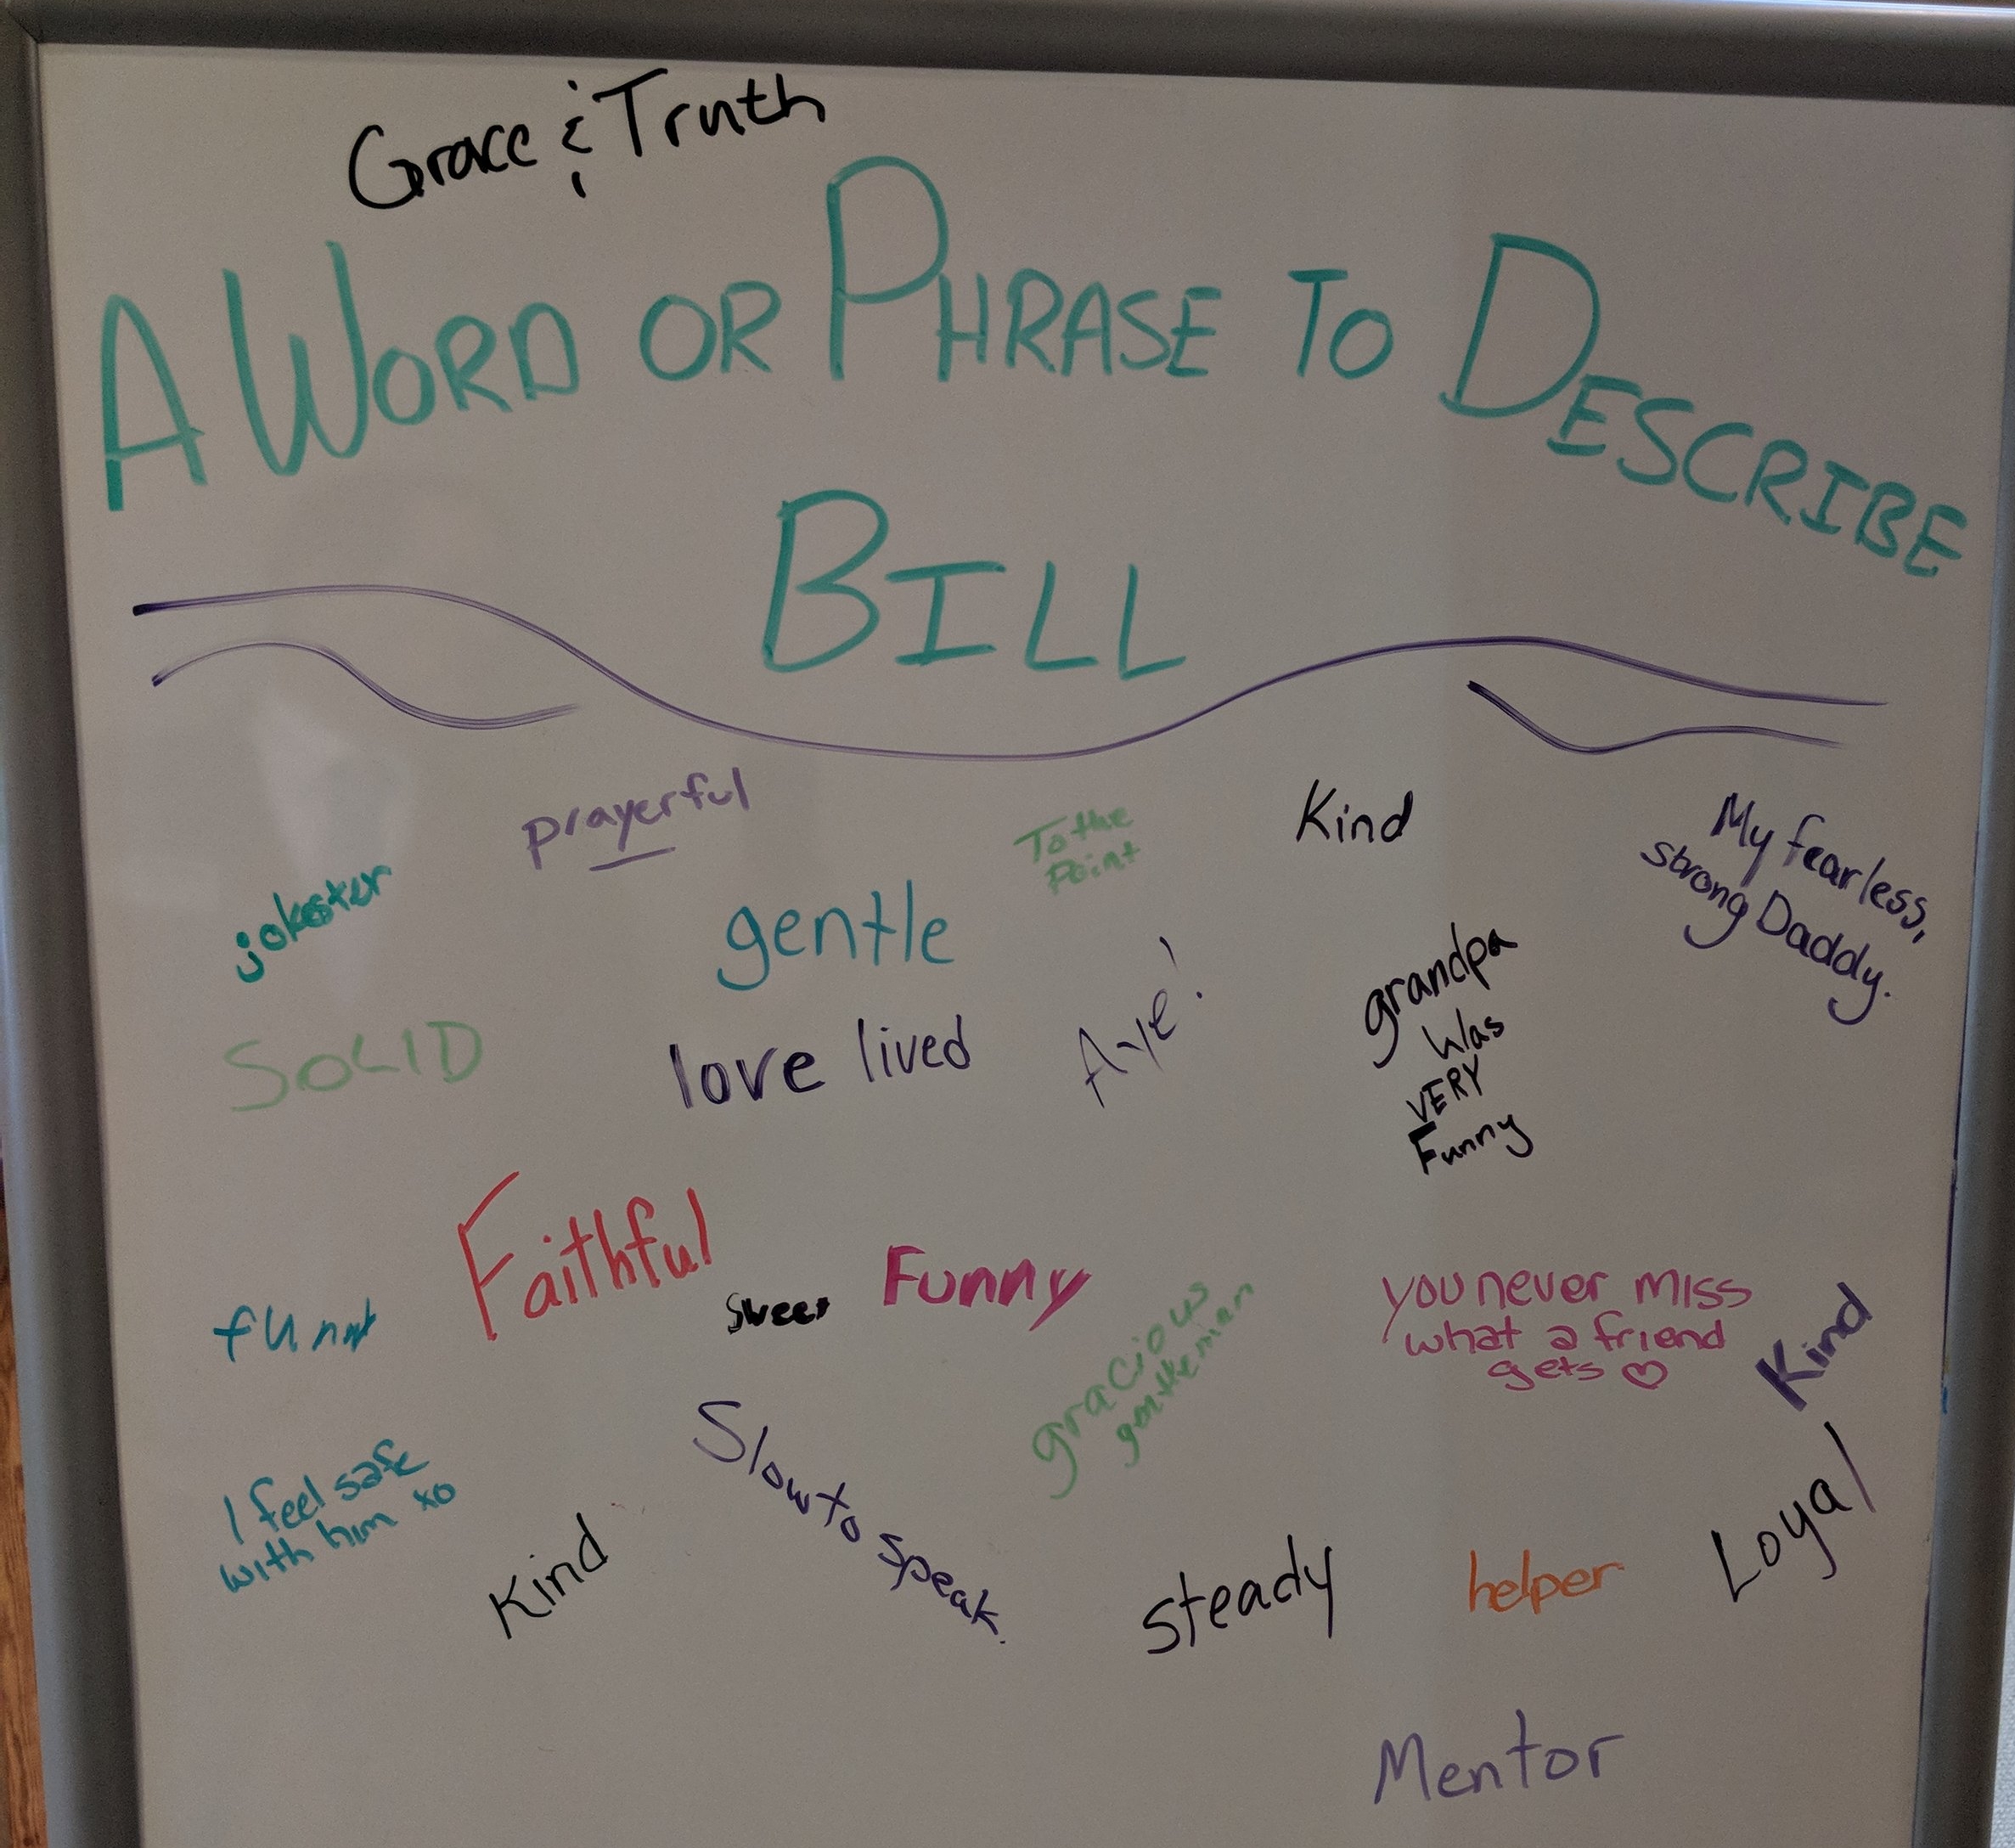 Grace & Truth
A WORD OR PHRASE TO DESCRIBE
BILL
prayerful
To the
Point
Kind
My fearless,
strong Daddy.
jokester
gentle
grandpa
was
VERY
Funny
SOLID
love lived
Aye!
Faithful
funny
Sweet
Funny
gracious
gentleman
you never miss
what a friend
gets ♡
Kind
I feel safe
with him xo
Kind
Slow to speak.
steady
helper
Loyal
Mentor